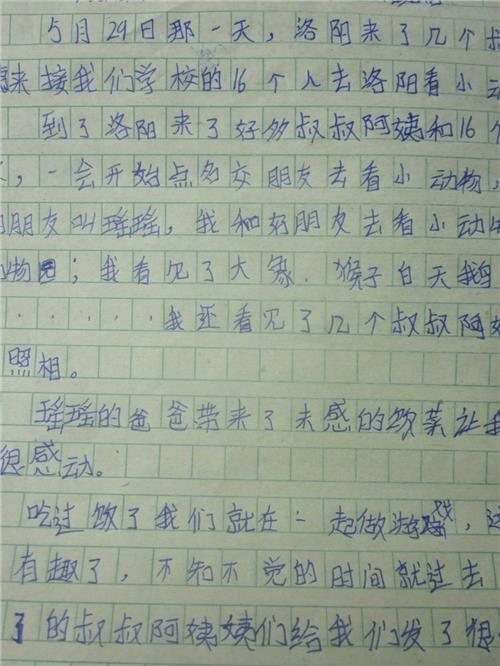 5月29日那一天，洛阳来了几个叔
来接我们学校的16个人去洛阳看小动
到了洛阳来了好多叔叔阿姨和16个
，一会开始点名交朋友去看小动物，
朋友叫瑶瑶，我和好朋友去看小动物
物园；我看见了大象．猴子白天鹅
．．．．．我还看见了几个叔叔阿姨
照相。
瑶瑶的爸爸带来了未感的饭菜让我
很感动。
吃过饭了我们就在一起做游戏，这
有趣了，不知不觉的时间就过去
了的叔叔阿姨姨们给我们发了很